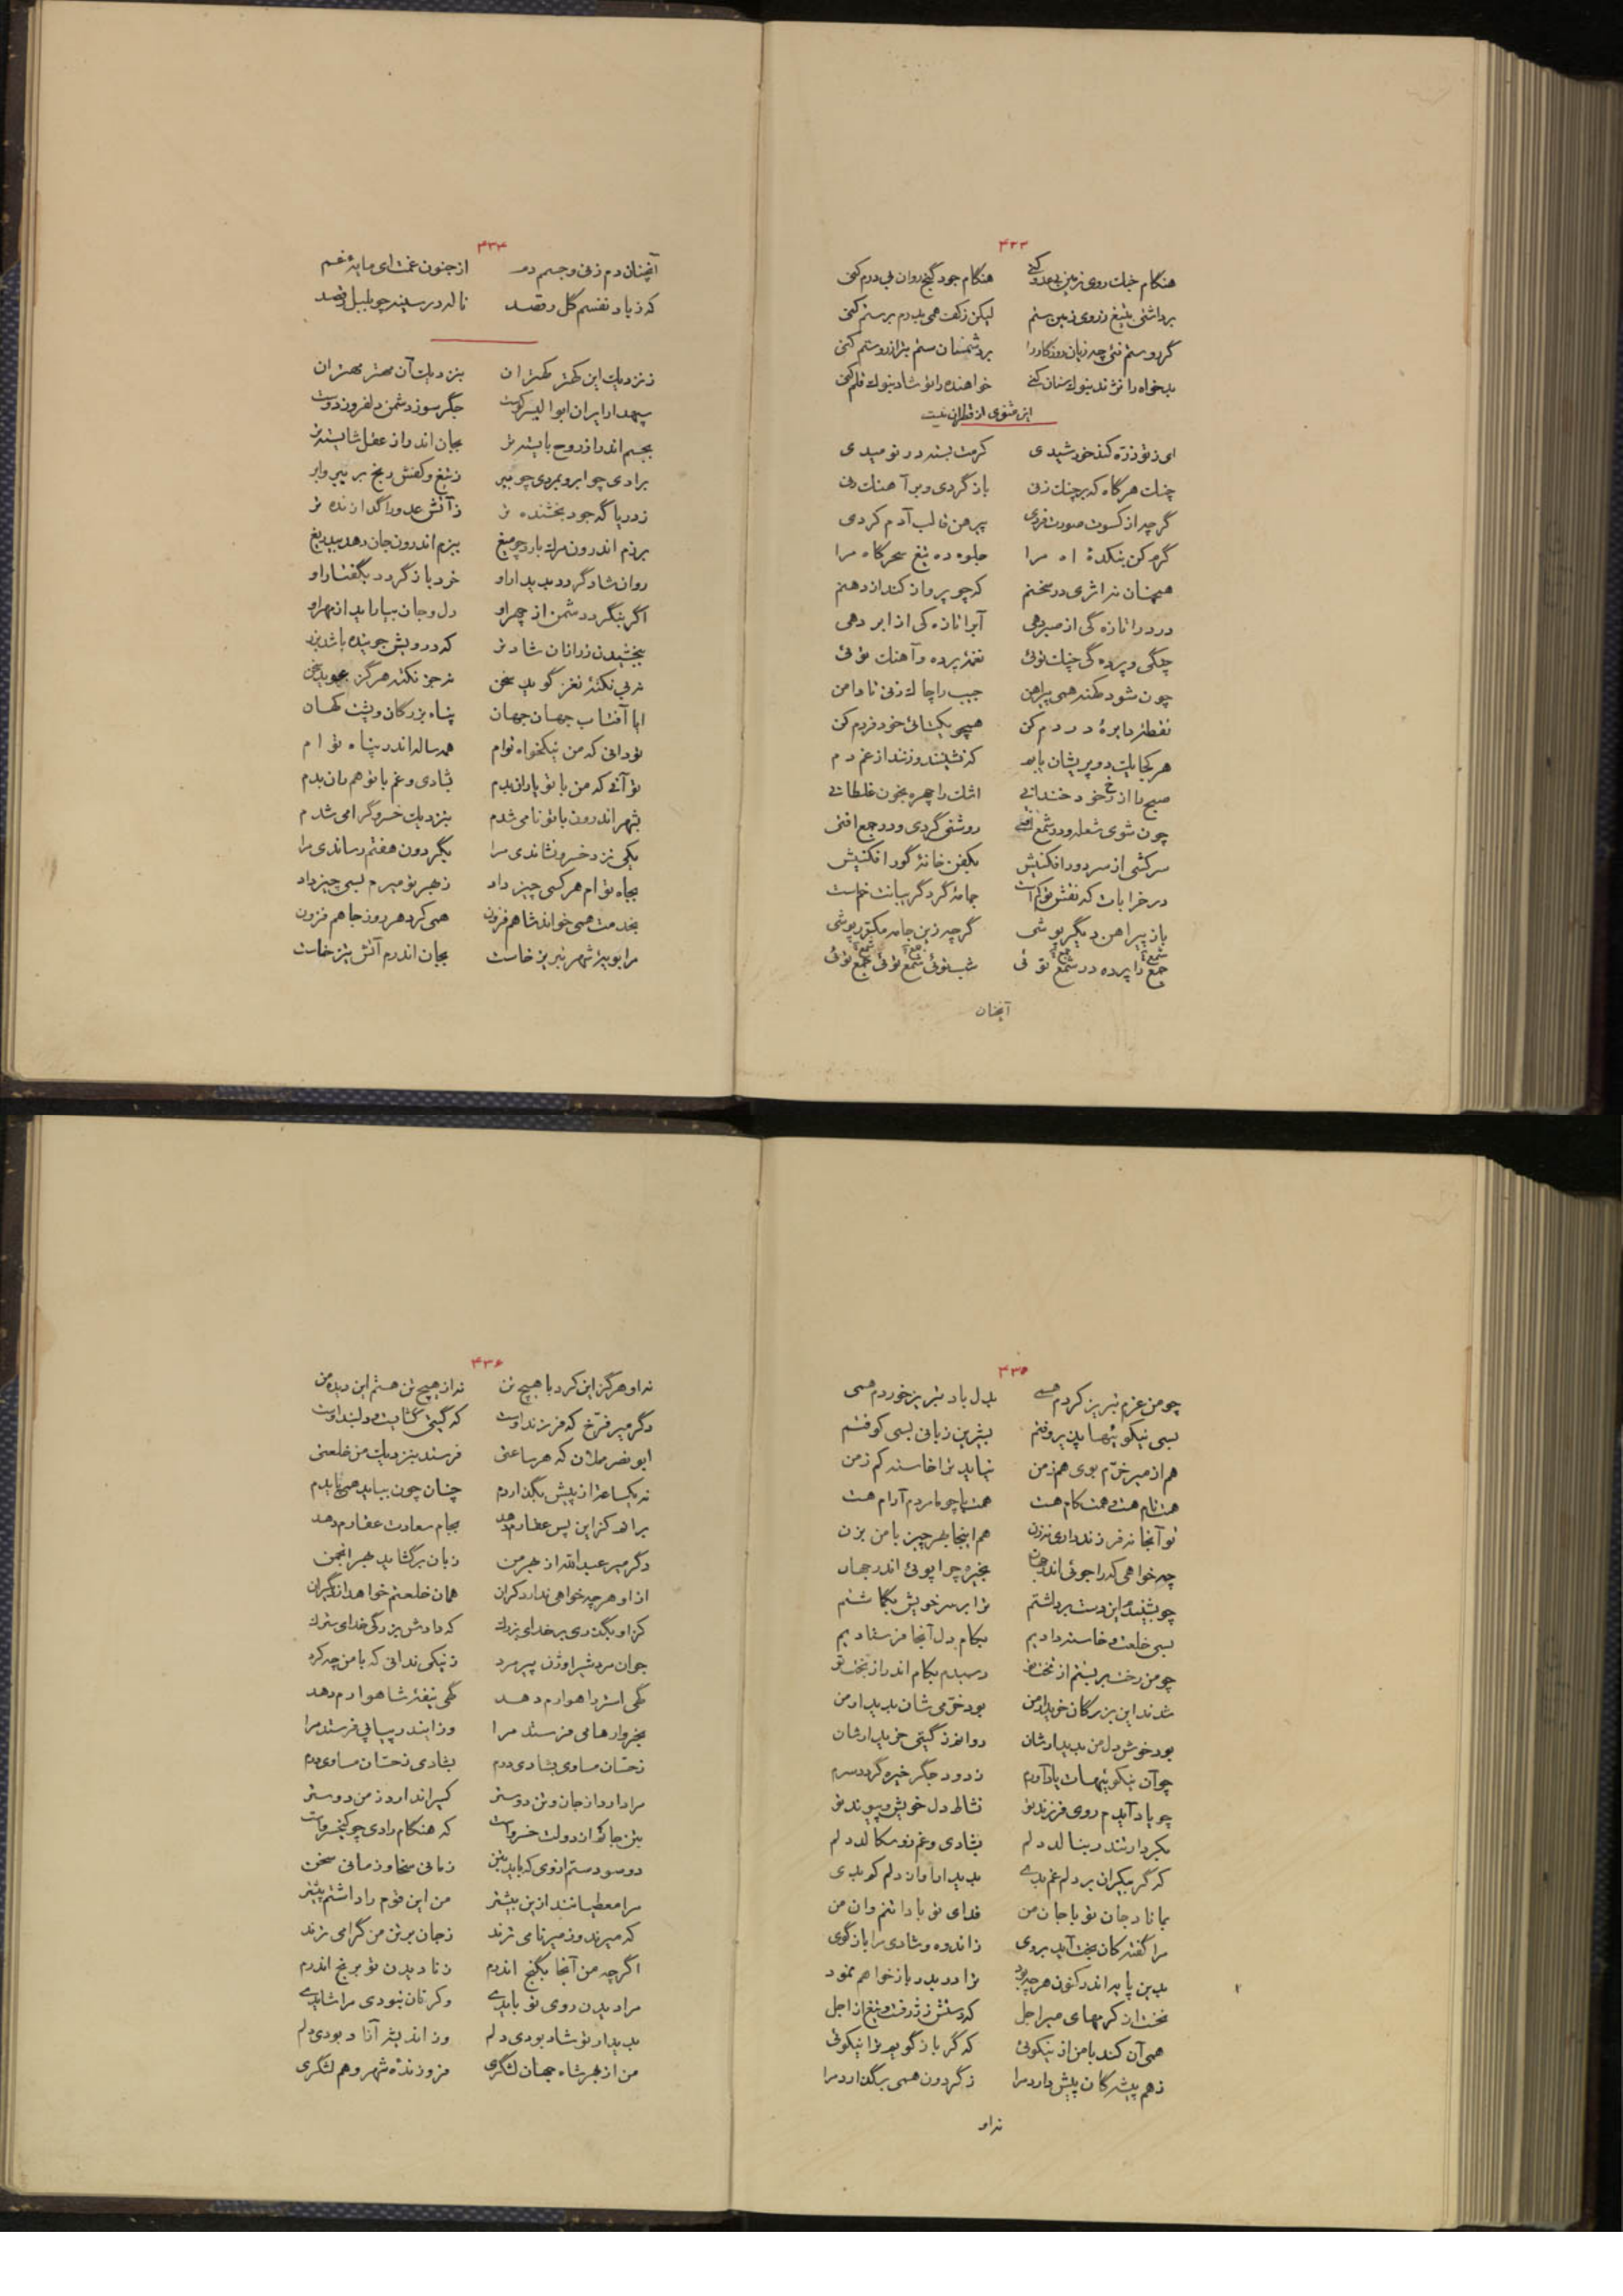 ۴۳۳
هنگام جنك روی زمین پر عدو کنی هنگام جود گنج روان بی درم کنی
برداشتی بتیغ ز روی زمین ستم لیکن ز کف همی بدرم بر ستم کنی
گر رستم نئی چه زیان روزگار را بر دشمنان ستم بتر از روستم کنی
بدخواه را نژند بنوك سنان کنی خواهنده را تو شاد بنوك قلم کنی
این مثنوی از قطران نیست
ای ز تو ذره کند خورشیدی کرمت بسته در نومیدی
چنك هرگاه که بر چنك زنی باز گردی و بر آهنك زنی
گرچه از کسوت صورت فردی پیرهن قالب آدم کردی
گرم کن بتکدهٔ آه مرا جلوه ده تیغ سحرگاه مرا
همچنان نه اثری در سخنم که چو پرواز کند از دهنم
درد را تازه گی از صبر دهی آب را تازه گی از ابر دهی
چنگی و پرده گی چنك توئی نغمه پرده و آهنك توئی
چون شود کهنه همی پیراهن جیب را چاك زنی تا دامن
نقطهٔ دایرهٔ دردم کن همچو یکتائی خود فردم کن
هر کجا یك دو پریشان با هم که نشینند و زنند از غم دم
صبح را از رخ خود خندانی اشك را چهره بخون غلطانی
چون شوی شعله و در شمع افتی روشنی گردی و در جمع افتی
سرکشی از سر دور افکنیش بکفن خانهٔ گور افکنیش
در خرابات که نقش تو کم است جامهٔ گرد گریبانت خم است
باز پیراهن دیگر پوشی گرچه زین جامه مکرر پوشی
جمع را پرده در شمع توئی شب توئی شمع توئی جمع توئی
آنچنان
۴۳۴
آنچنان دم زنی و جسم دمد از جنون غمت ای مایهٔ غم
که ز باد نفسم گل رقصد ناله در سینه چو بلبل رقصد
ز نزدیك این کهتر کهتران بنزدیك آن مهتر مهتران
سپهدار ایران ابوالیسر کوست جگر سوز دشمن دلفروز دوست
بجسم اندر از روح بایسته تر بجان اندر از عقل شایسته تر
برادی چو ابر و بمردی چو ببر ز تیغ و کفش رنج بر ببر و ابر
ز دریا گه جود بخشنده تر ز آتش عدو را گدازنده تر
برزم اندرون مرك بارد چو میغ ببزم اندرون جان دهد بیدریغ
روان شاد گردد بدیدار او خرد باز گردد بگفتار او
اگر بنگرد دشمن از چهر او دل و جان بیاراید از مهر او
ببخشیدن زر از آن شادتر که درویش جوینده باشد بزر
نه بی نکته نغز گوید سخن نه جز نکته هرگز بجوید سخن
ایا آفتاب جهان جهان پناه بزرگان و پشت کهان
تو دانی که من نیکخواه توام همه ساله اندر پناه توام
تو آنی که من با تو یاران بدم بشادی و غم با تو همسان بدم
بشهر اندرون با تو نامی شدم بنزدیك خسرو گرامی شدم
یکی نزد خسرو نشاندی مرا بگردون هفتم رساندی مرا
بجاه توام هر کسی چیز داد ز بهر تو میرم بسی چیز داد
بخدمت همی خواند شاهم فزون همی کرد هر روز جاهم فزون
مرا پویهٔ شهر تبریز خاست بجان اندرم آتش تیز خاست
۴۳۵
چو من عزم تبریز کردم همی بدل باد تبریز خوردم همی
بسی نیکوئیها پذیرفتیم بشیرین زبانی بسی کوفتیم
هم از میر خرم بوی هم ز من نیاید ترا خاسته کم ز من
همت نام هست و همت کام هست همت با چو ما مردم آرام هست
تو آنجا نه فرزند داری نه زن هم اینجا بهر چیز با من بزن
چه خواهی که را جوئی اندر جهان بخیره چرا پوئی اندر جهان
چو بشنید من این دست برداشتم ترا بر سر خویش بگماشتم
بسی خلعت و خاسته دادیم بکام دل آنجا فرستادیم
چو من رخت بر بستم از تخت تو رسیدم بکام اندر از بخت تو
شدند این بزرگان خریدار من بود خرمی شان بدیدار من
بود خوش دل من بدیدارشان روانم ز گیتی خریدارشان
چو آن نیکوئیهات یاد آورم ز درد جگر خیره گردد سرم
چو یاد آیدم روی فرزند تو نشاط دل خویش و پیوند تو
بکردار تندر بنالد دلم بشادی و غم نو سگالد دلم
که گر بیکران بر دلم غم بدی بدیدار او آن دلم کم بدی
بماناد جان تو با جان من فدای تو بادا تن و آن من
مرا گفته کان بخت آید بروی ز اندوه و شادی مرا باز گوی
بدین پایه اندر کنون هر چه بود ترا در بدر باز خواهم نمود
نخست از کرمهای میر اجل که دستش ز زر رفت و تیغ از اجل
همی آن کند با من از نیکوئی که گر باز گویم ترا نیکوئی
ز هم پیشه گان پیش دارد مرا ز گردون همی برگذارد مرا
نه او
۴۳۶
نه او هرگز این کرد با هیچ تن نه از هیچ تن هستم این دیده من
دگر میر فرخ که فرزند اوست که گیتی گشایست و دلبند اوست
ابو نصر مملان که هر ساعتی فرستد بنزدیك من خلعتی
نه یکساعت از پیش بگذاردم چنان چون بباید همی بایدم
براند کز این پس عطا رم دهد بجام سعادت عقارم دهد
دگر میر عبدالله از بهر من زبان برگشاید بهر انجمن
از او هر چه خواهی ندارد گران همان خلعتم خواهد از دیگران
کز او بگذری بر خدای بزرك که دادش بزرگی خدای سترك
جوان مرد شیر اوژن پیر مرد ز نیکی ندانی که با من چه کرد
گهی استر راهوارم دهد گهی نیفهٔ شاهوارم دهد
بخروارها می فرستد مرا وز آیند ر پیاپی فرستد مرا
ز حسّان مساوی بشادی درم بشادی ز حسّان مساوی درم
مرا دارد از جان و تن دوستر کسیرا ندارد ز من دوستر
بتن جانش از دولت خسرو است که هنگام رادی چو کیخسرو است
دو سود ستم از وی که باید بتن زمانی سخا و زمانی سخن
مرا معطیانند ازین بیشتر من این قوم را داشتم پیشتر
که میرند وز میر نامی ترند ز جان بر تن من گرامی ترند
اگرچه من آنجا بگنج اندرم ز نادیدن تو برنج اندرم
مرا دیدن روی تو بایدی وگر نان نبودی مرا شایدی
بدیدار تو شاد بودی دلم وز اندیشه آزاد بودی دلم
من از بهر شاه جهان لشگری فروزندهٔ شهر و هم لشگری